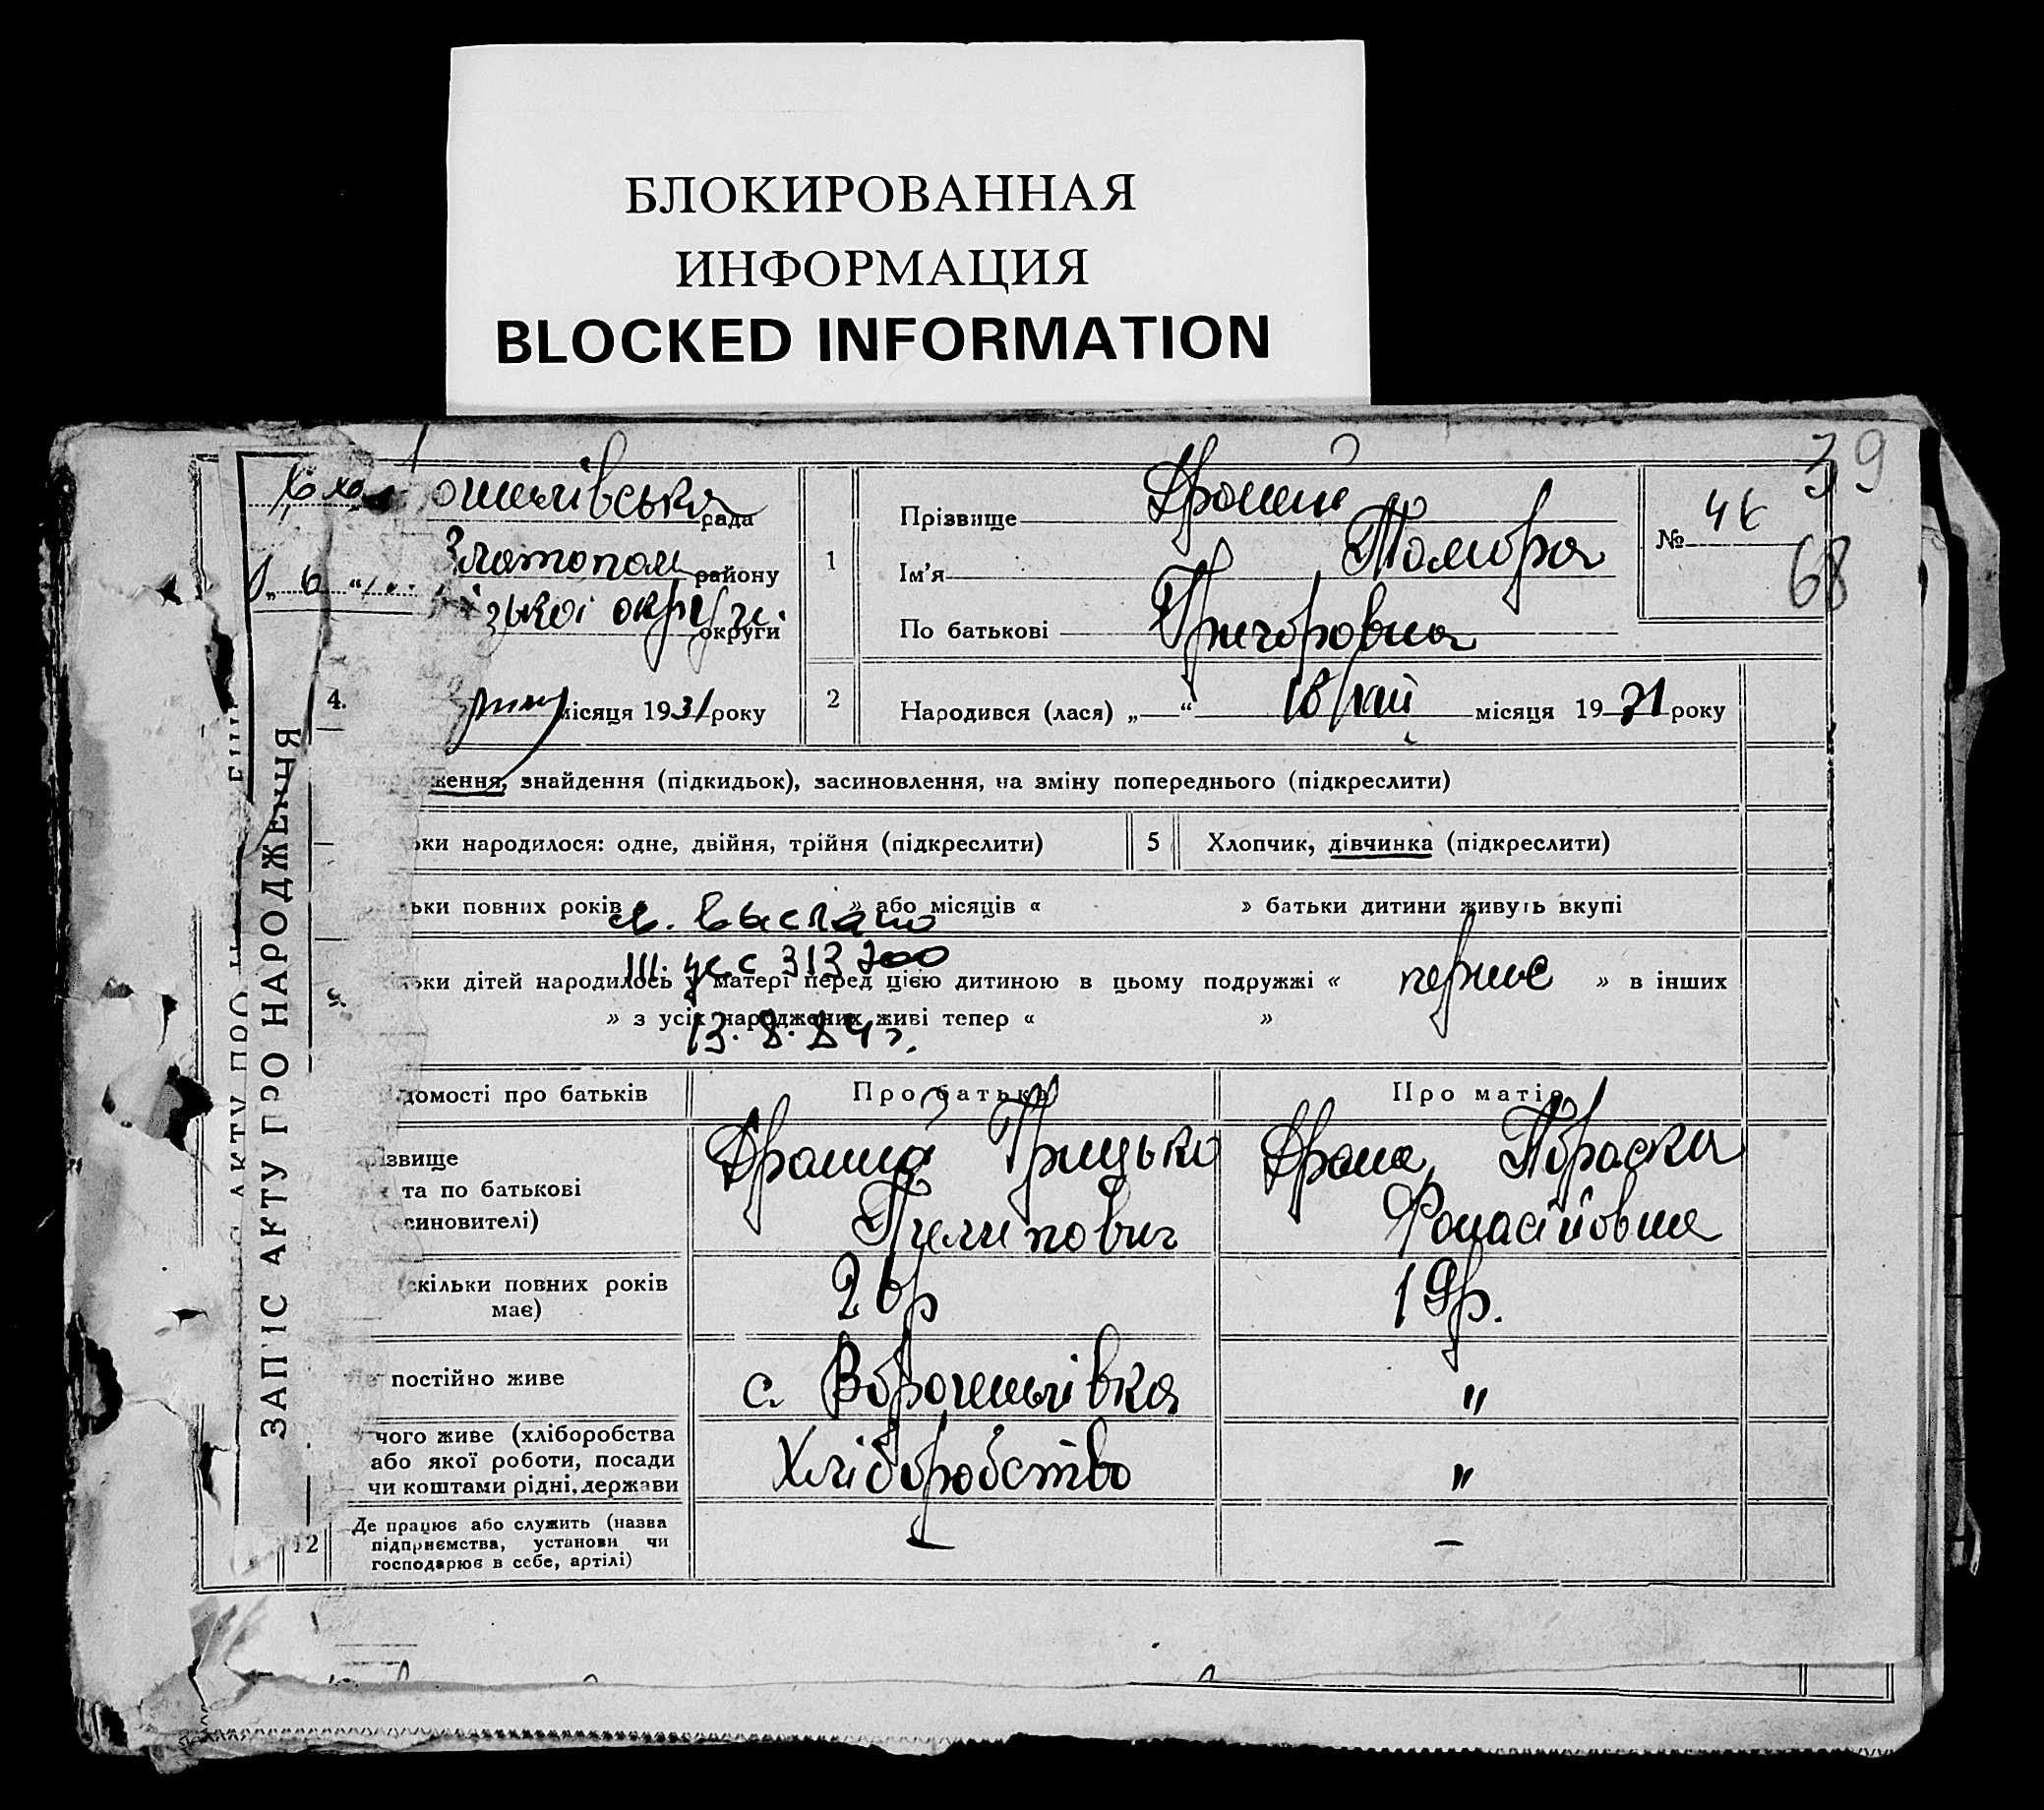 БЛОКИРОВАННАЯ
ИНФОРМАЦИЯ
BLOCKED INFORMATION
39
68
ошилівська рада
Златопол району
зької округи округи
1
Прізвище
Ім'я Тамара
По батькові Григоровна
№ 46
4.
місяця 1931 року
2
Народився (лася) „ “ 18 місяця 1931 року
ження, знайдення (підкидьок), засиновлення, на зміну попереднього (підкреслити)
ьки народилося: одне, двійня, трійня (підкреслити)
5
Хлопчик, дівчинка (підкреслити)
льки повних років » або місяців « » батьки дитини живуть вкупі
выслано
313200
13.8.84г.
ьки дітей народилось у матері перед цією дитиною в цьому подружжі « перше » в інших
» з усіх народжених живі тепер « »
ЗАПІС АКТУ ПРО НАРОДЖЕННЯ
домості про батьків
Про батька
Про матір
ізвище
та по батькові
синовителі)
Грицько
Пилипович
Параска
Фанасіївна
скільки повних років
має)
26р
19р.
постійно живе
с. Ворошилівка
"
чого живе (хліборобства
або якої роботи, посади
чи коштами рідні, держави
Хліборобство
"
12
Де працює або служить (назва
підприємства, установи чи
господарює в себе, артілі)
—
—